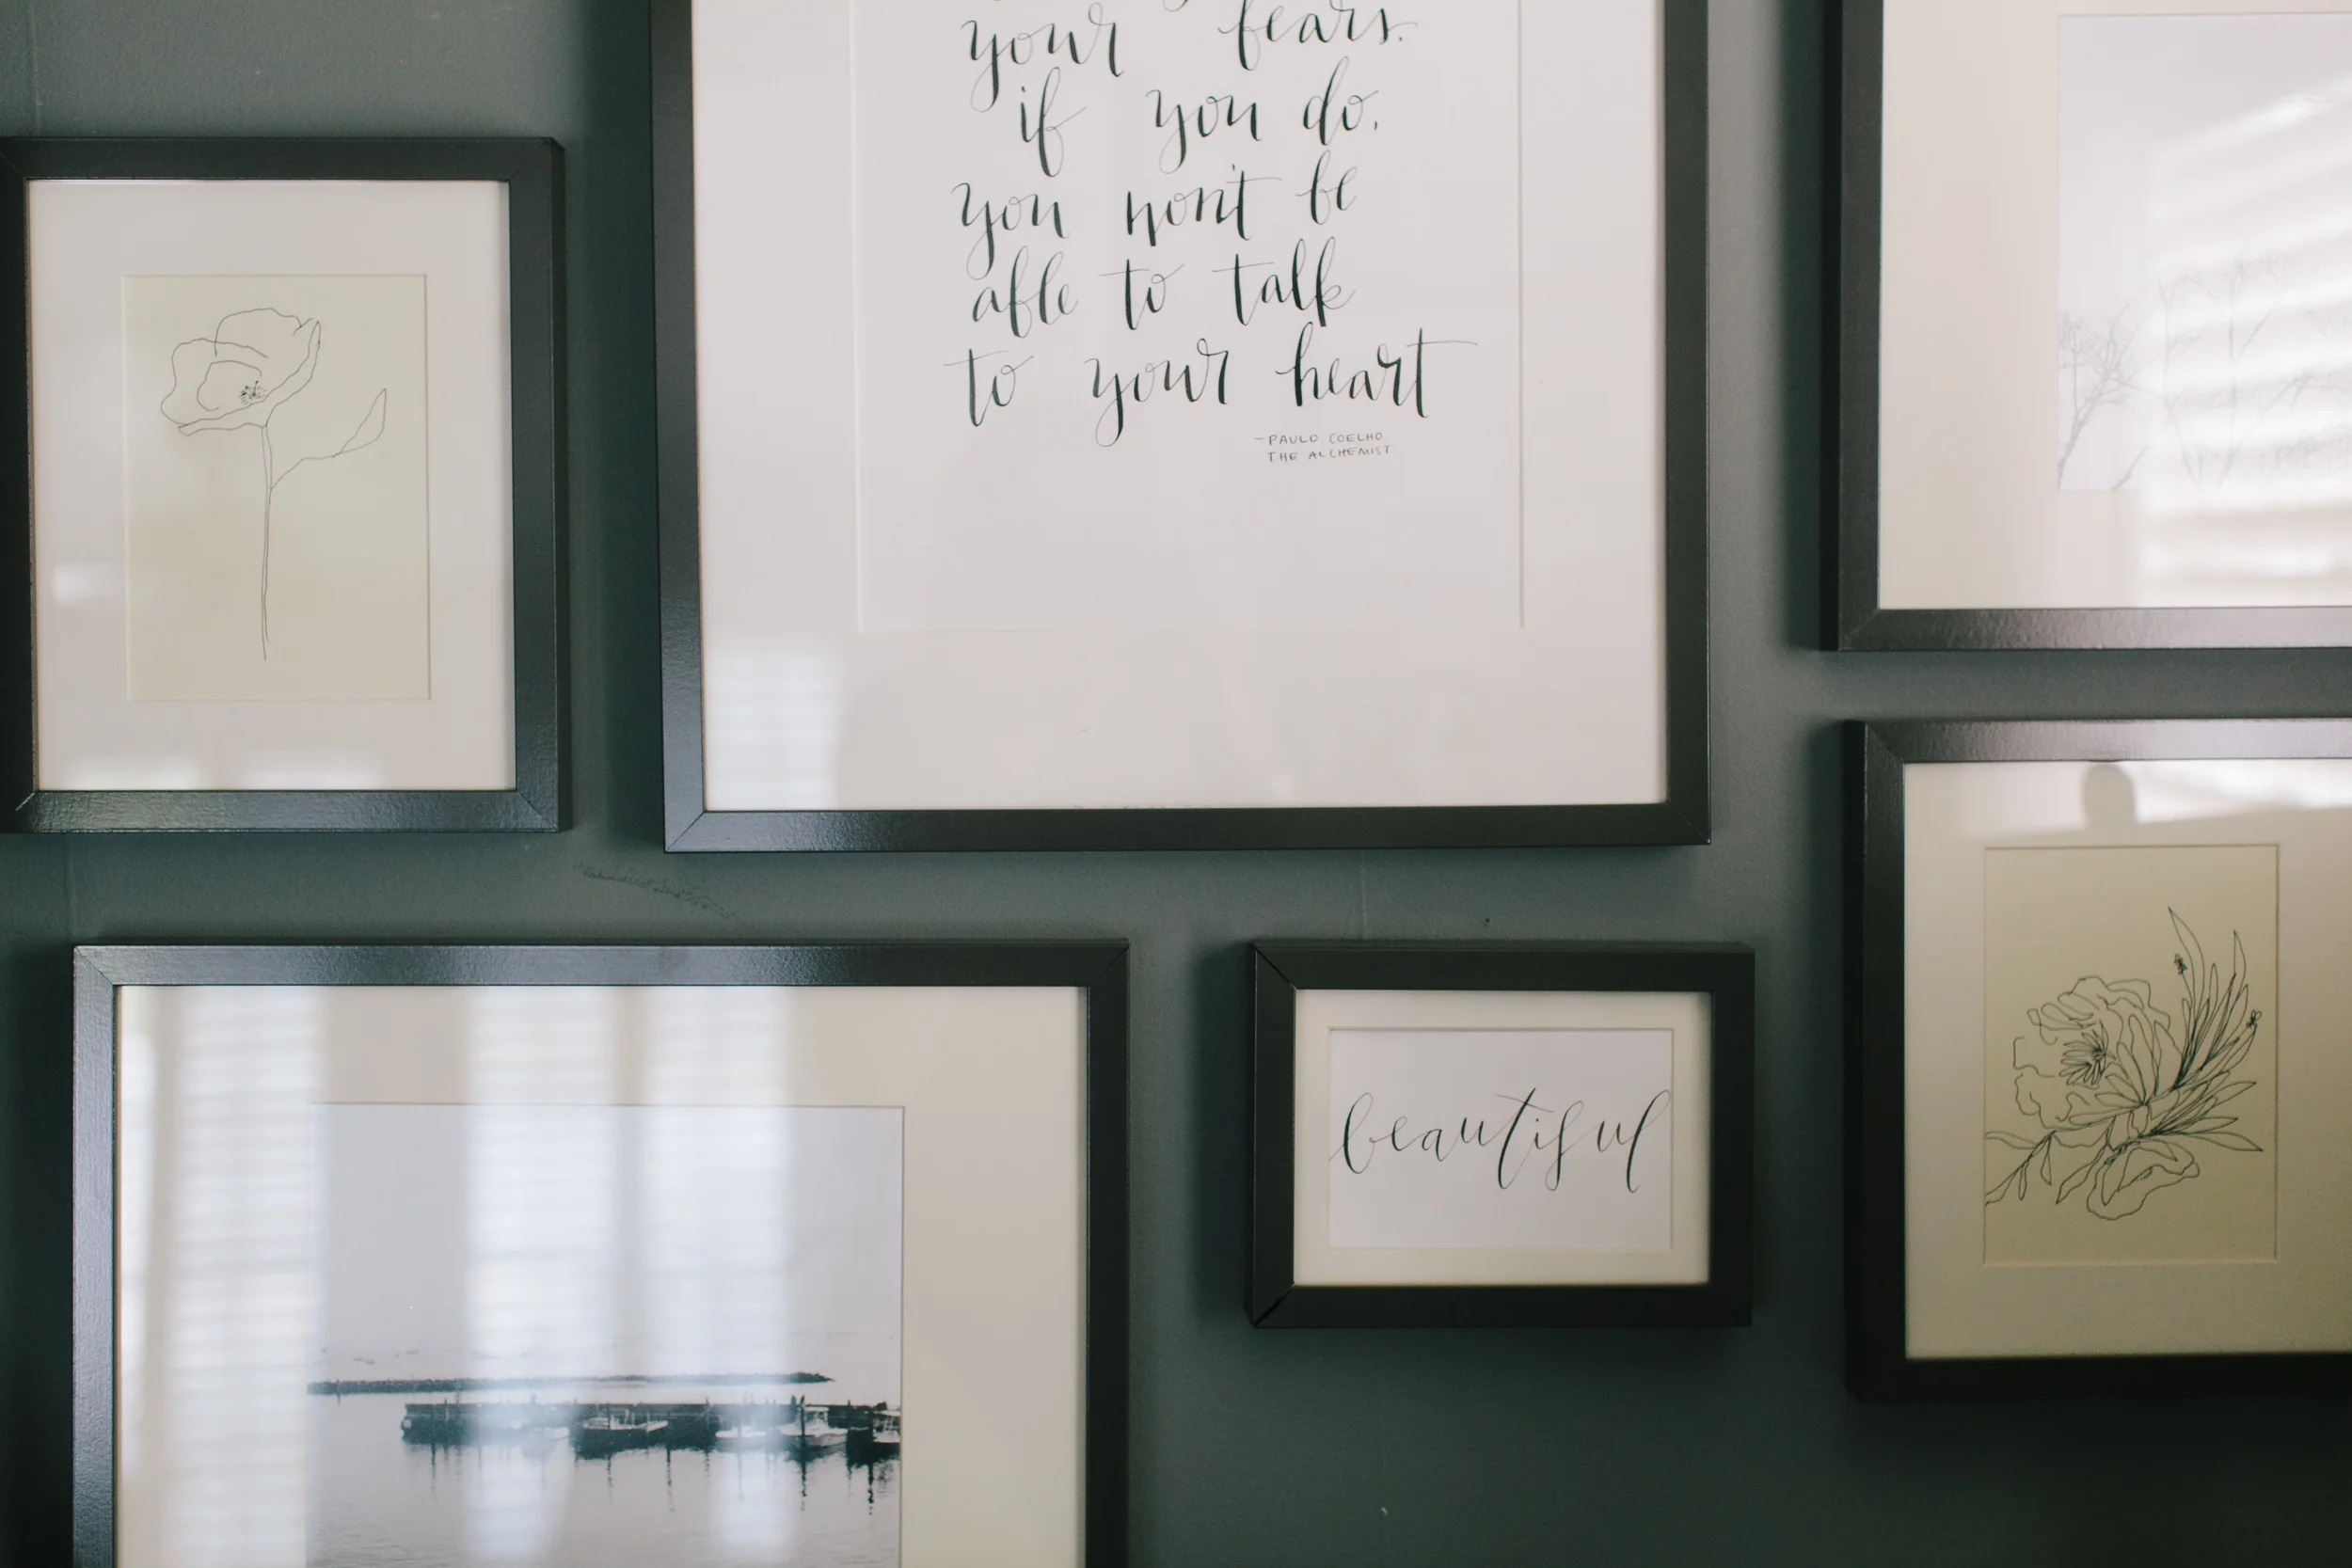 your fears.
if you do,
you won't be
able to talk
to your heart
-PAULO COELHO
THE ALCHEMIST
beautiful